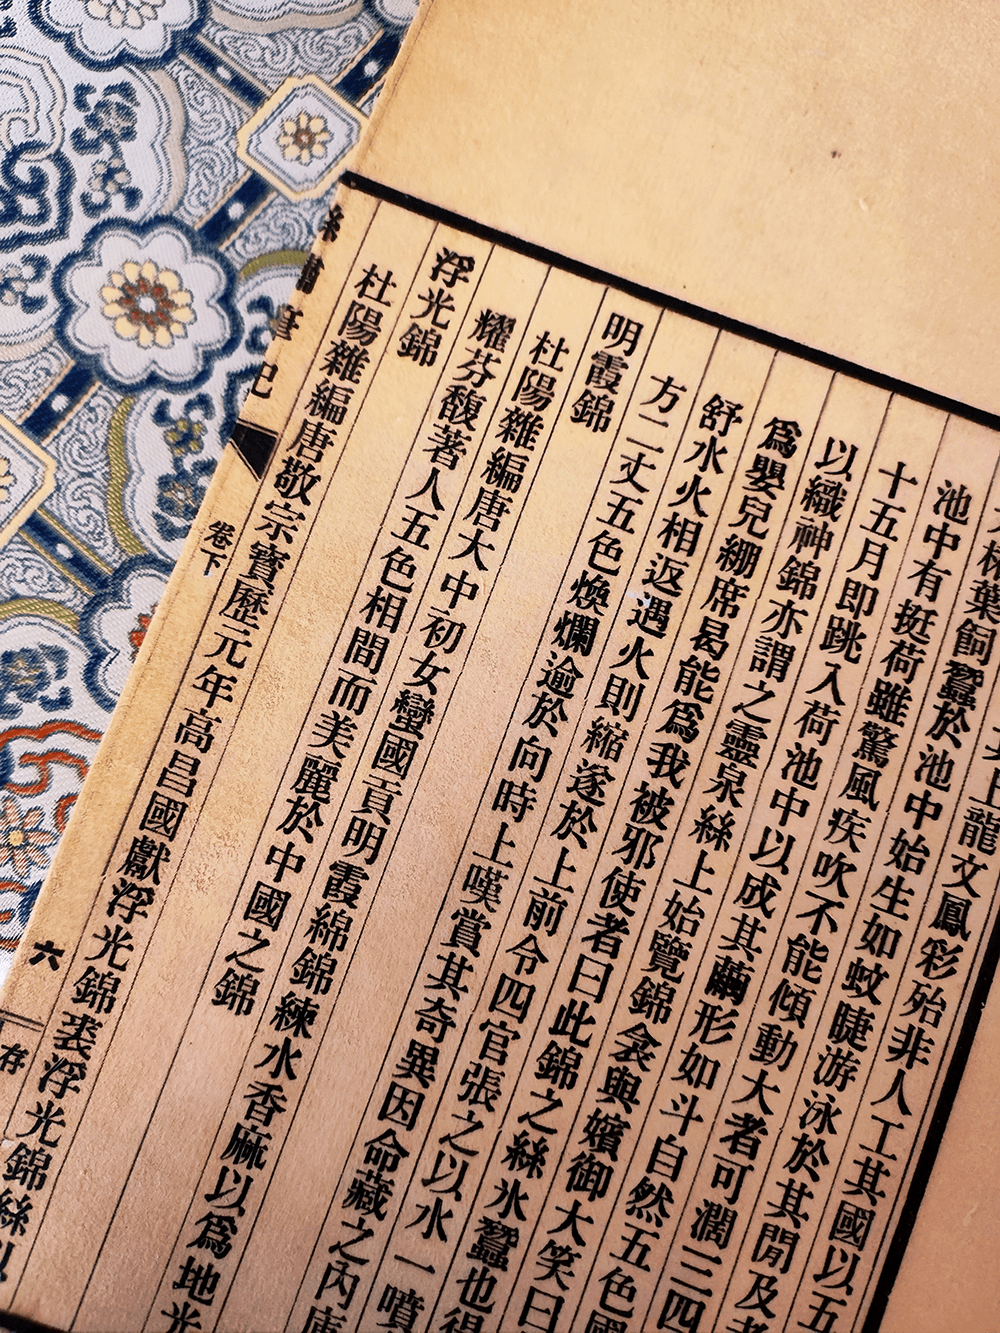 上龍文鳳彩殆非人工其國以五
葉飼蠶於池中始生如蚊睫游泳於其閒及
池中有挺荷雖驚風疾吹不能傾動大者可濶三四
十五月即跳入荷池中以成其繭形如斗自然五色國
以織神錦亦謂之靈泉絲上始覽錦衾與嬪御大笑曰
爲嬰兒繃席曷能爲我被邪使者曰此錦之絲氷蠶也得
舒水火相返遇火則縮遂於上前令四官張之以水一噴
方二丈五色煥爛逾於向時上嘆賞其奇異因命藏之內庫
明霞錦
杜陽雜編唐大中初女蠻國貢明霞綿錦練水香麻以爲地光
耀芬馥著人五色相間而美麗於中國之錦
浮光錦
杜陽雜編唐敬宗寶歷元年高昌國獻浮光錦裘浮光錦絲以
絲繡筆記
卷下
六
存